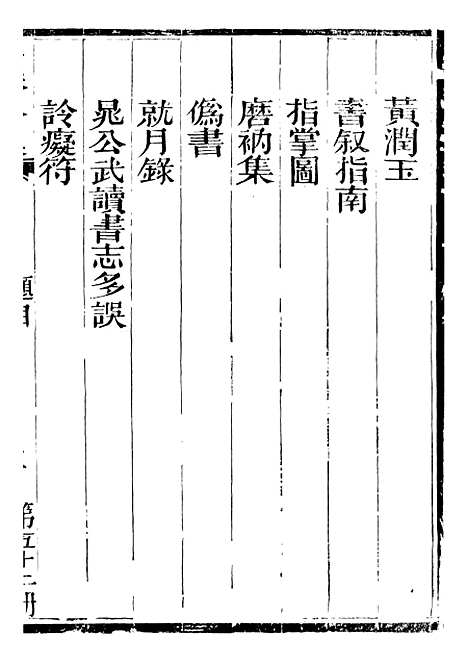 黃潤玉
書叙指南
指掌圖
磨衲集
僞書
就月錄
晁公武讀書志多誤
詅癡符
題目
第五十二冊